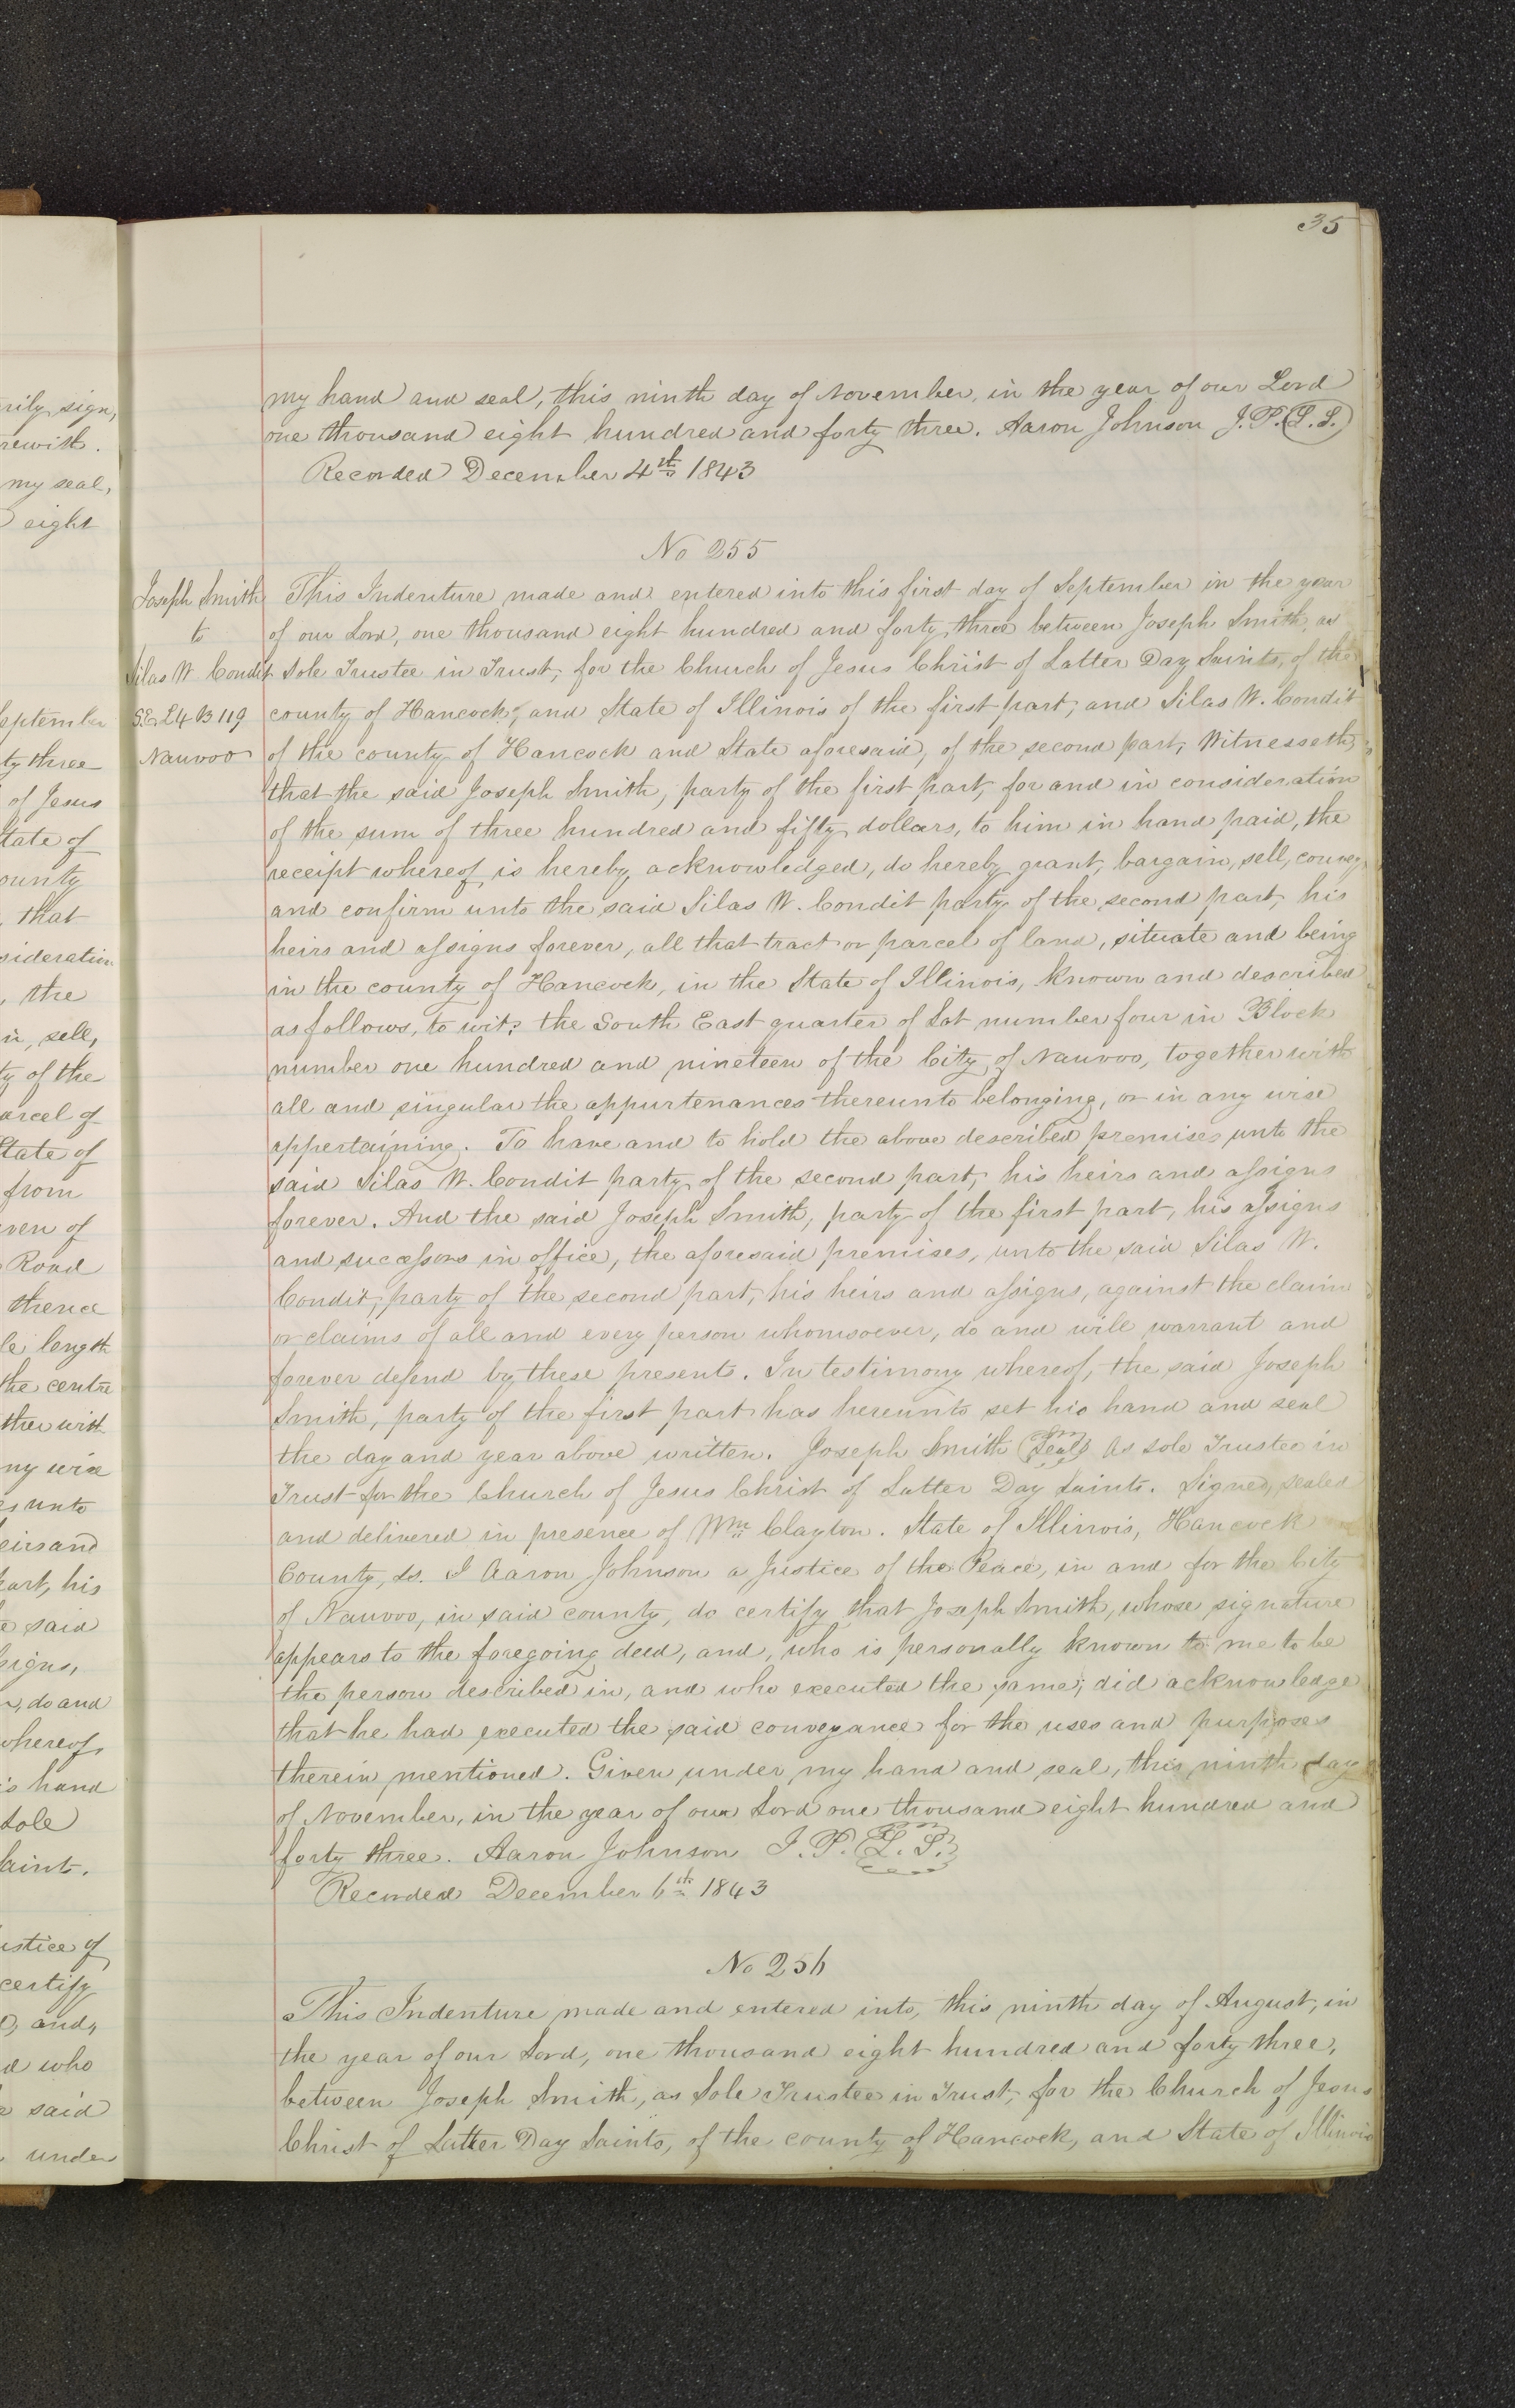 35
my hand and seal, this ninth day of November, in the year of our Lord
one thousand eight hundred and forty three. Aaron Johnson J.P. (L.S.)
Recorded December 4th 1843
No 255
Joseph Smith
to
Silas W. Condit
S.E. L4 B 119
Nauvoo
This Indenture made and entered into this first day of September in the year
of our Lord, one thousand eight hundred and forty three between Joseph Smith, as
Sole Trustee in Trust, for the Church of Jesus Christ of Latter Day Saints, of the
county of Hancock, and State of Illinois of the first part, and Silas W. Condit
of the county of Hancock and State aforesaid, of the second part, Witnesseth,
that the said Joseph Smith, party of the first part, for and in consideration
of the sum of three hundred and fifty dollars, to him in hand paid, the
receipt whereof is hereby acknowledged, do hereby grant, bargain, sell, convey
and confirm unto the said Silas W. Condit party of the second part, his
heirs and assigns forever, all that tract or parcel of land, situate and being
in the county of Hancock, in the State of Illinois, known and described
as follows, to wit: the South East quarter of Lot number four in Block
number one hundred and nineteen of the City of Nauvoo, together with
all and singular the appurtenances thereunto belonging, or in any wise
appertaining. To have and to hold the above described premises unto the
said Silas W. Condit party of the second part, his heirs and assigns
forever. And the said Joseph Smith, party of the first part, his assigns
and successors in office, the aforesaid premises, unto the said Silas W.
Condit, party of the second part, his heirs and assigns, against the claim
or claims of all and every person whomsoever, do and will warrant and
forever defend by these presents. In testimony whereof, the said Joseph
Smith, party of the first part has hereunto set his hand and seal
the day and year above written. Joseph Smith (Seal) As sole Trustee in
Trust for the Church of Jesus Christ of Latter Day Saints. Signed, sealed
and delivered in presence of Wm Clayton. State of Illinois, Hancock
County, ss. I Aaron Johnson a Justice of the Peace, in and for the City
of Nauvoo, in said county, do certify that Joseph Smith, whose signature
appears to the foregoing deed, and, who is personally known to me to be
the person described in, and who executed the same; did acknowledge
that he had executed the said conveyance for the uses and purposes
therein mentioned. Given under my hand and seal, this ninth day
of November, in the year of our Lord one thousand eight hundred and
forty three. Aaron Johnson J.P. (L.S.)
Recorded December 6th 1843
No 256
This Indenture made and entered into, this ninth day of August, in
the year of our Lord, one thousand eight hundred and forty three,
between Joseph Smith, as Sole Trustee in Trust, for the Church of Jesus
Christ of Latter Day Saints, of the county of Hancock, and State of Illinois